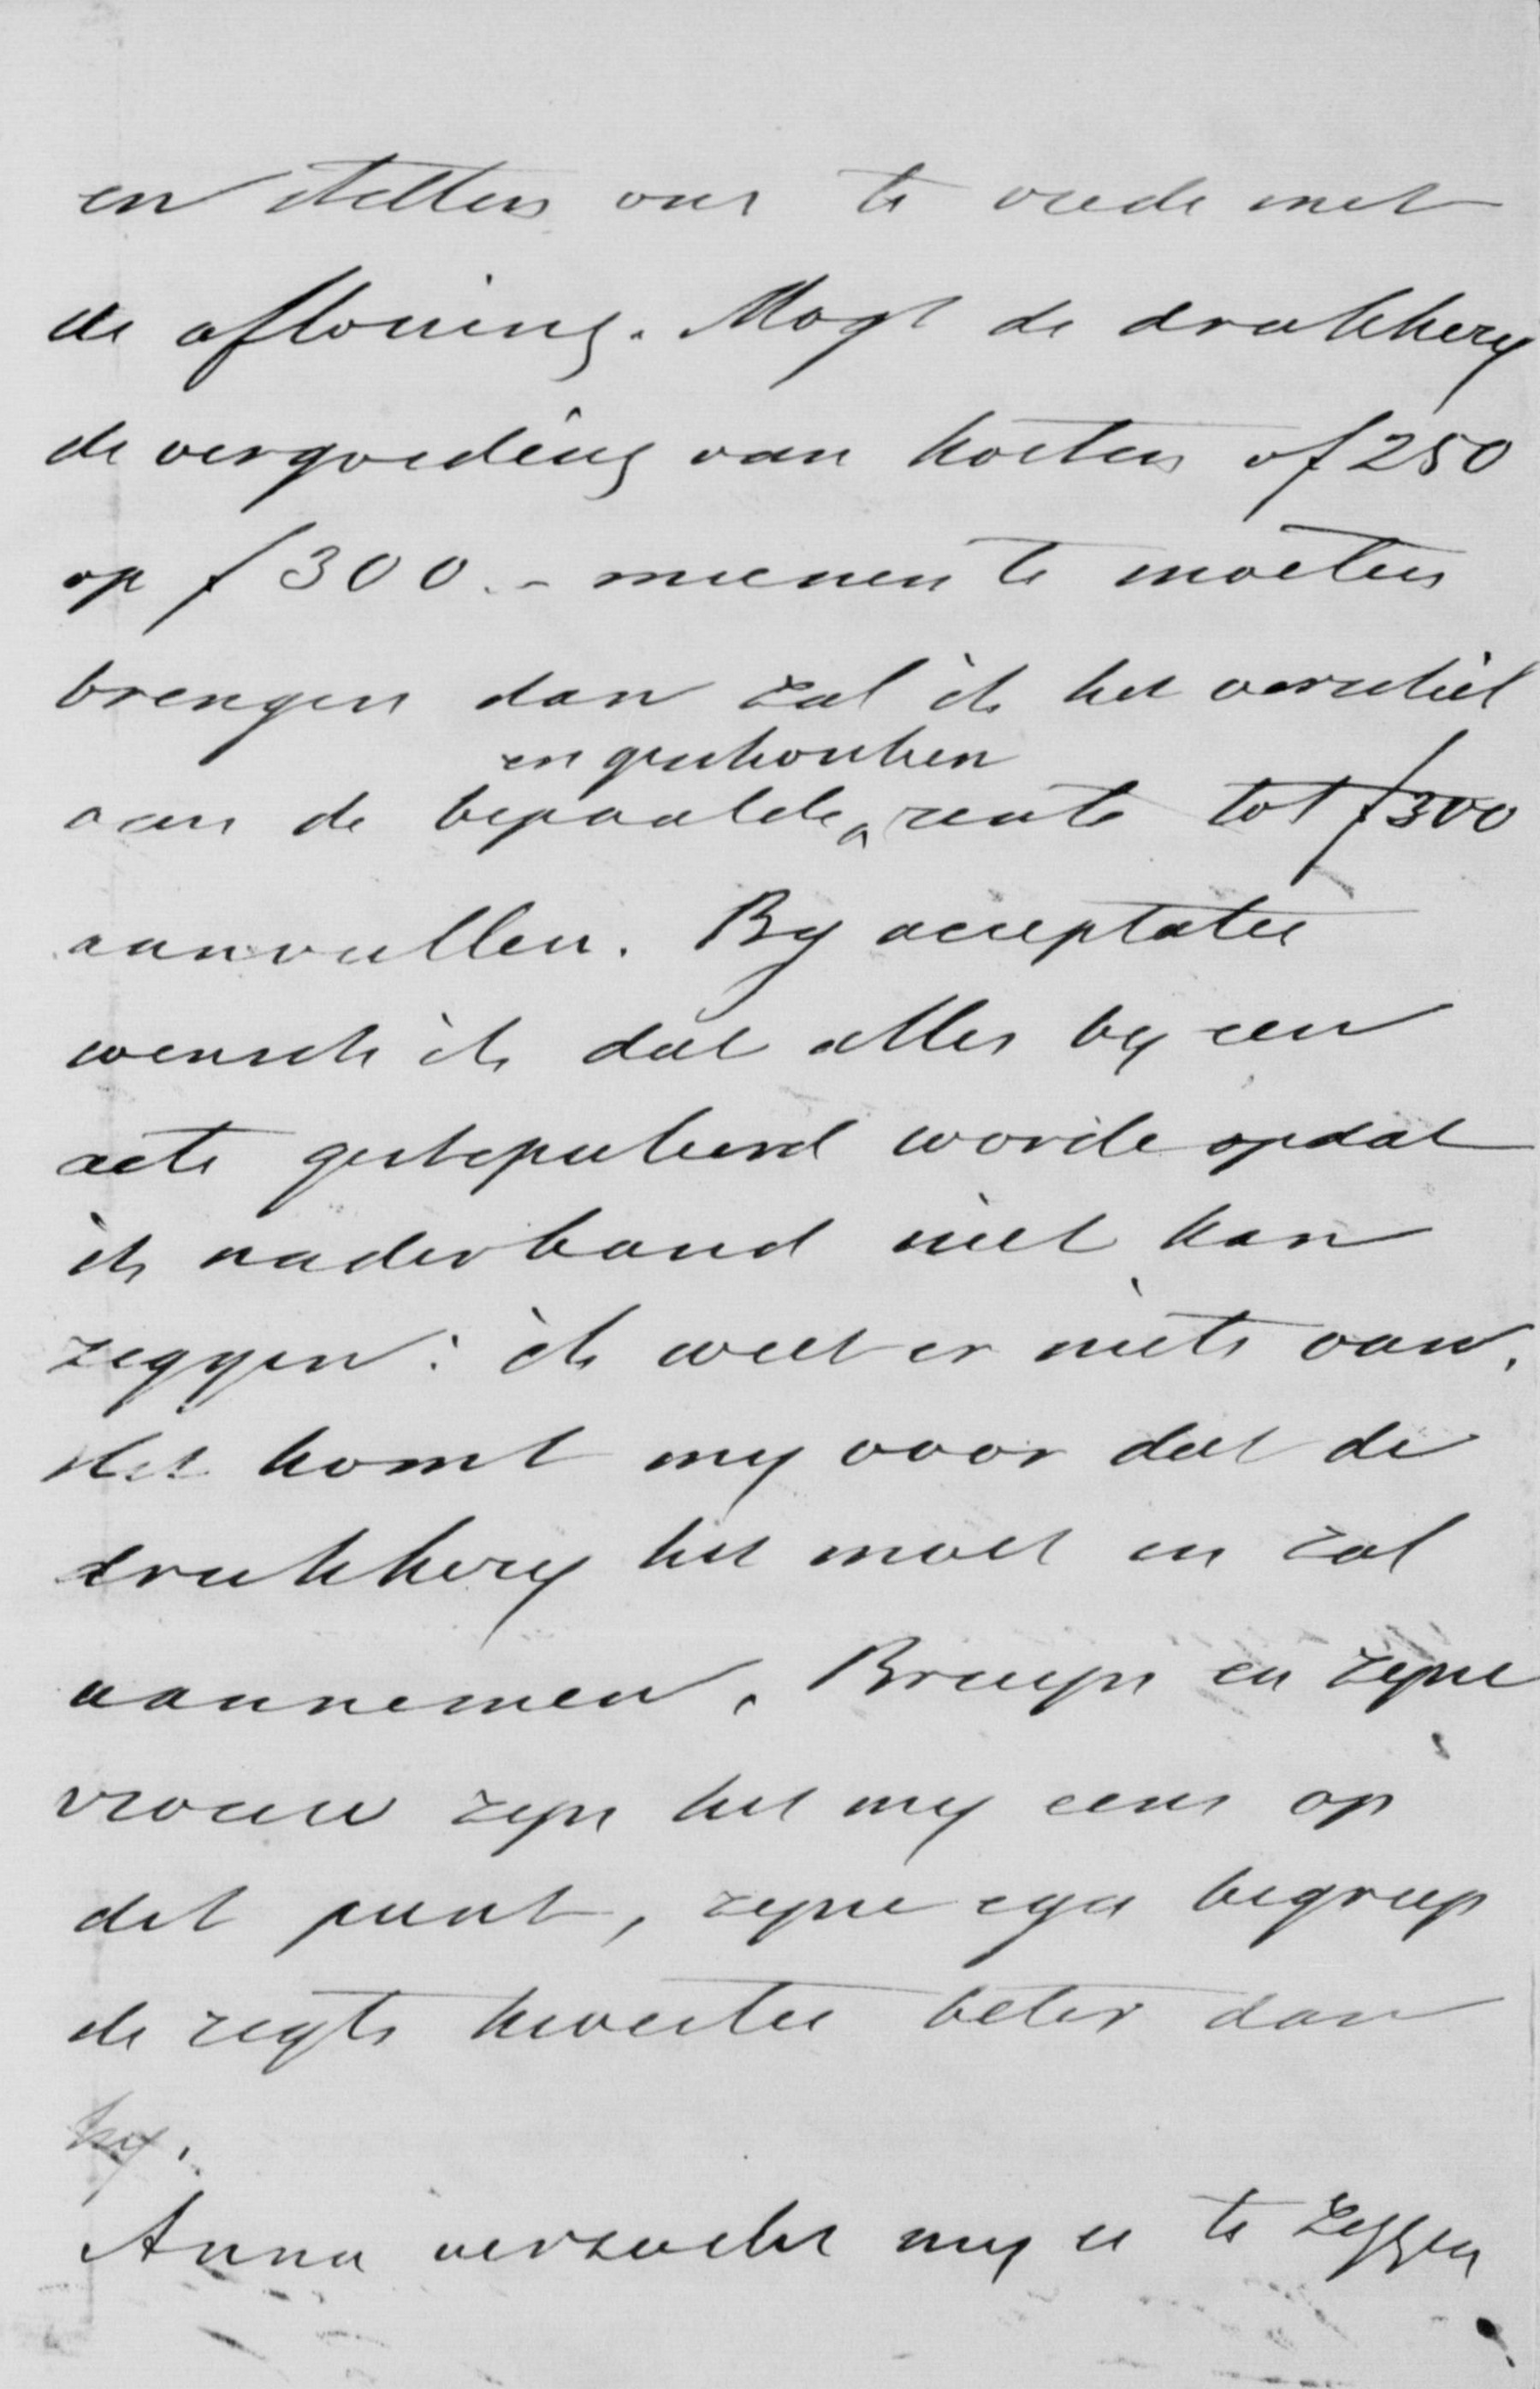 en stellen ons te vrede met
de aflossing. Mogt de drukkery
de vergoeding van kosten of 250
op f 300.- meenen te moeten
brengen dan zal ik het verschil
en geschonken
aan de bepaalde rente tot f 300
aanvullen. By acceptatie
wensch ik dat alles by een
acte gestipuleerd worde opdat
ik naderhand niet kan
zeggen: ik weet er niets van.
Het komt my voor dat de
drukkery het moet en zal
aannemen. Bruyn en zyne
vrouw zyn het my eens op
dit punt, zyne ega begreep
de regte kwestie beter dan
hy.
Anna verzocht my u te zeggen